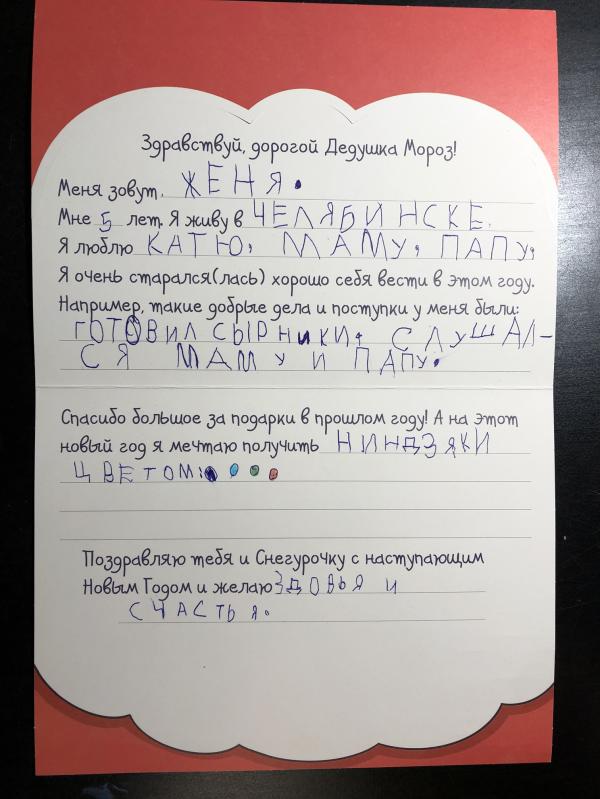 Здравствуй, дорогой Дедушка Мороз!
Меня зовут, ЖЕНЯ.
Мне 5 лет. Я живу в ЧЕЛЯБИНСКЕ.
Я люблю КАТЮ, МАМУ, ПАПУ,
Я очень старался(лась) хорошо себя вести в этом году.
Например, такие добрые дела и поступки у меня были:
ГОТОВИЛ СЫРНИКИ, СЛУШАЛ-
СЯ МАМУ И ПАПУ.
Спасибо большое за подарки в прошлом году! А на этот
новый год я мечтаю получить НИНДЗЯКИ
ЦВЕТОМ:
Поздравляю тебя и Снегурочку с наступающим
Новым Годом и желаю ЗДОВЬЯ И
СЧАСТЬЯ.